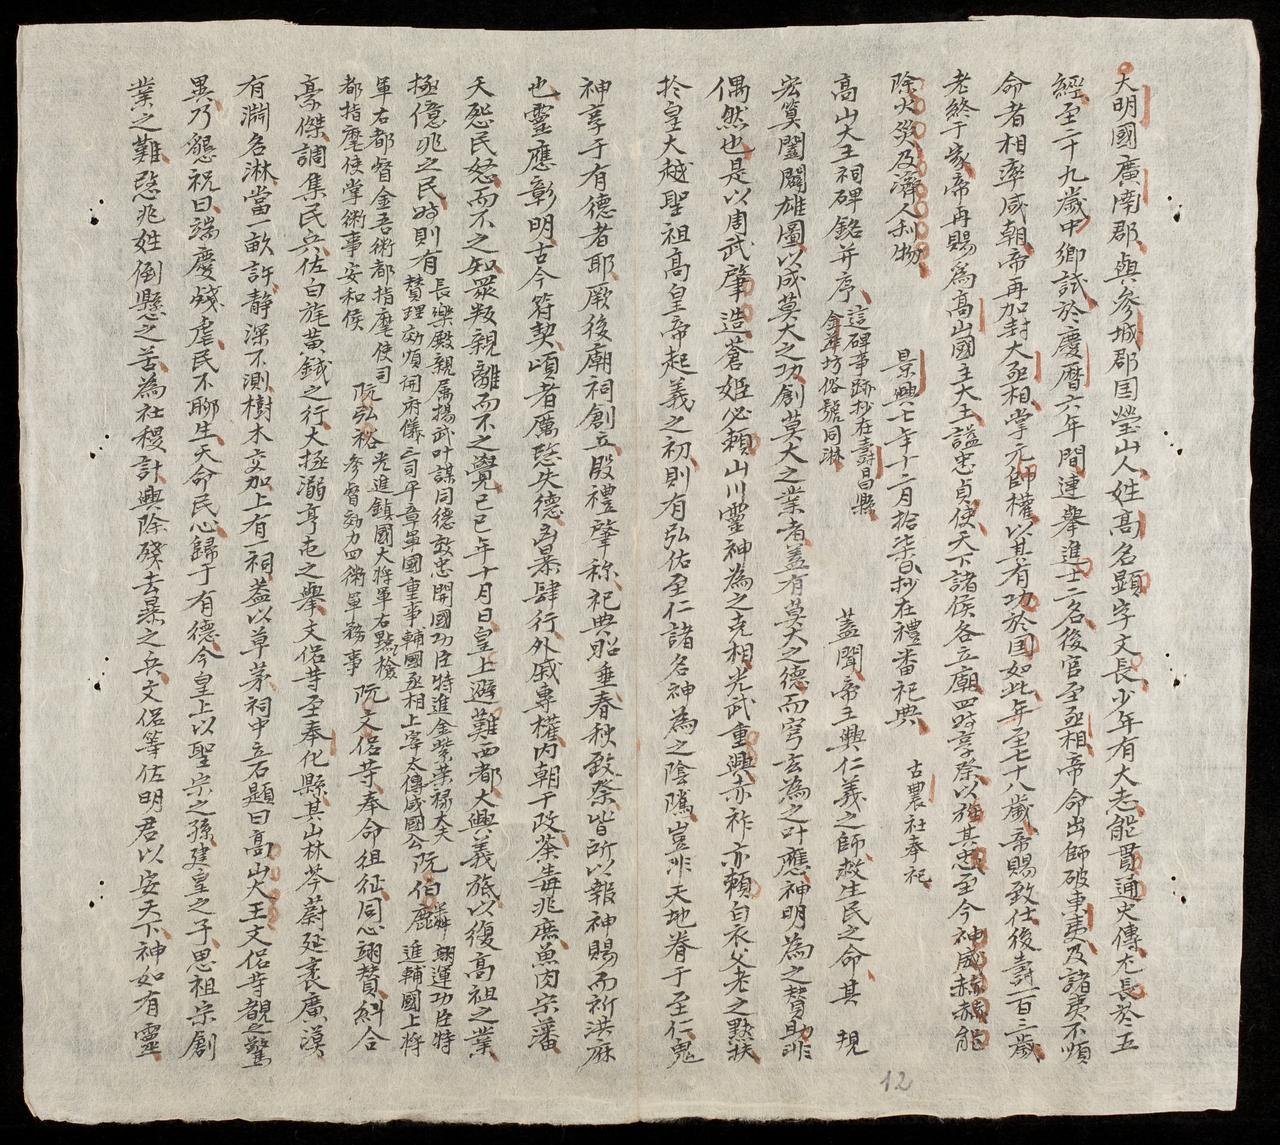 大明國廣南郡與參城郡国瑩山人姓高名顯字文長少年有大志能貫通史傳尤長於五
經至二十九歲中鄉試於慶曆六年間連舉進士二名後官至丞相帝命出師破東夷及諸夷不順
命者相率咸朝帝再加封大丞相掌元帥權以其有功於国如此年至七十八歲帝賜致仕後壽一百三歲
老終于家帝再賜為高山國主大王謚忠貞使天下諸侯各立廟四時享祭以旌其忠至今神威赫赫能
除火災及濟人利物 景興七年十二月拾柒日抄在禮番祀典 古農社奉祀
高山大王祠碑銘并序 這碑事跡抄在壽昌縣金華坊俗號同淋 蓋聞帝王興仁義之師救生民之命其規
宏算闔闢雄圖以成莫大之功創莫大之業者蓋有莫大之德而穹玄為之叶應神明為之賛助非
偶然也是以周武肇造蒼姬必頼山川靈神為之克相光武重興赤祚亦頼白衣父老之黙扶
於皇大越聖祖高皇帝起義之初則有弘佑至仁諸名神為之陰隲豈非天地眷于至仁鬼
神享于有德者耶厥後廟祠創立殷禮肇称祀典昭垂春秋致祭皆所以報神賜而祈洪庥
也靈應彰明古今符契頃者厲愍失德暴肆行外戚專權内朝干政荼毒兆庶魚肉宗藩
天怨民怒而不之知眾叛親離而不之覺己巳年十月日皇上避難西都大興義旅以復高祖之業
拯億兆之民時則有 長樂殿親属揚武叶謀同德效忠開國功臣特進金紫荣禄大夫賛理効順開府儀三司平章軍國重事輔國丞相上宰太傅威國公阮伯麟 翊運功臣特進輔國上將
軍右都督金吾衛都指揮使司都指揮使掌衛事安和侯 阮弘裕 光進鎮國大將軍右㸃檢参督効力四衛軍務事 阮文侶等奉命徂征同心翊賛糾合
豪傑調集民兵佐白旄黄鉞之行大拯溺亨屯之舉文侶等至奉化縣其山林岑蔚延袤廣漠
有淵名淋當一畝許静深不測樹木交加上有一祠蓋以草茅祠中立石題曰高山大王文侶等覩之驚
異乃懇祝曰端慶殘虐民不聊生天命民心歸于有德今皇上以聖宗之孫建皇之子思祖宗創
業之難愍兆姓倒懸之苦為社稷計興除殘去暴之兵文侶等佐明君以安天下神如有靈
12